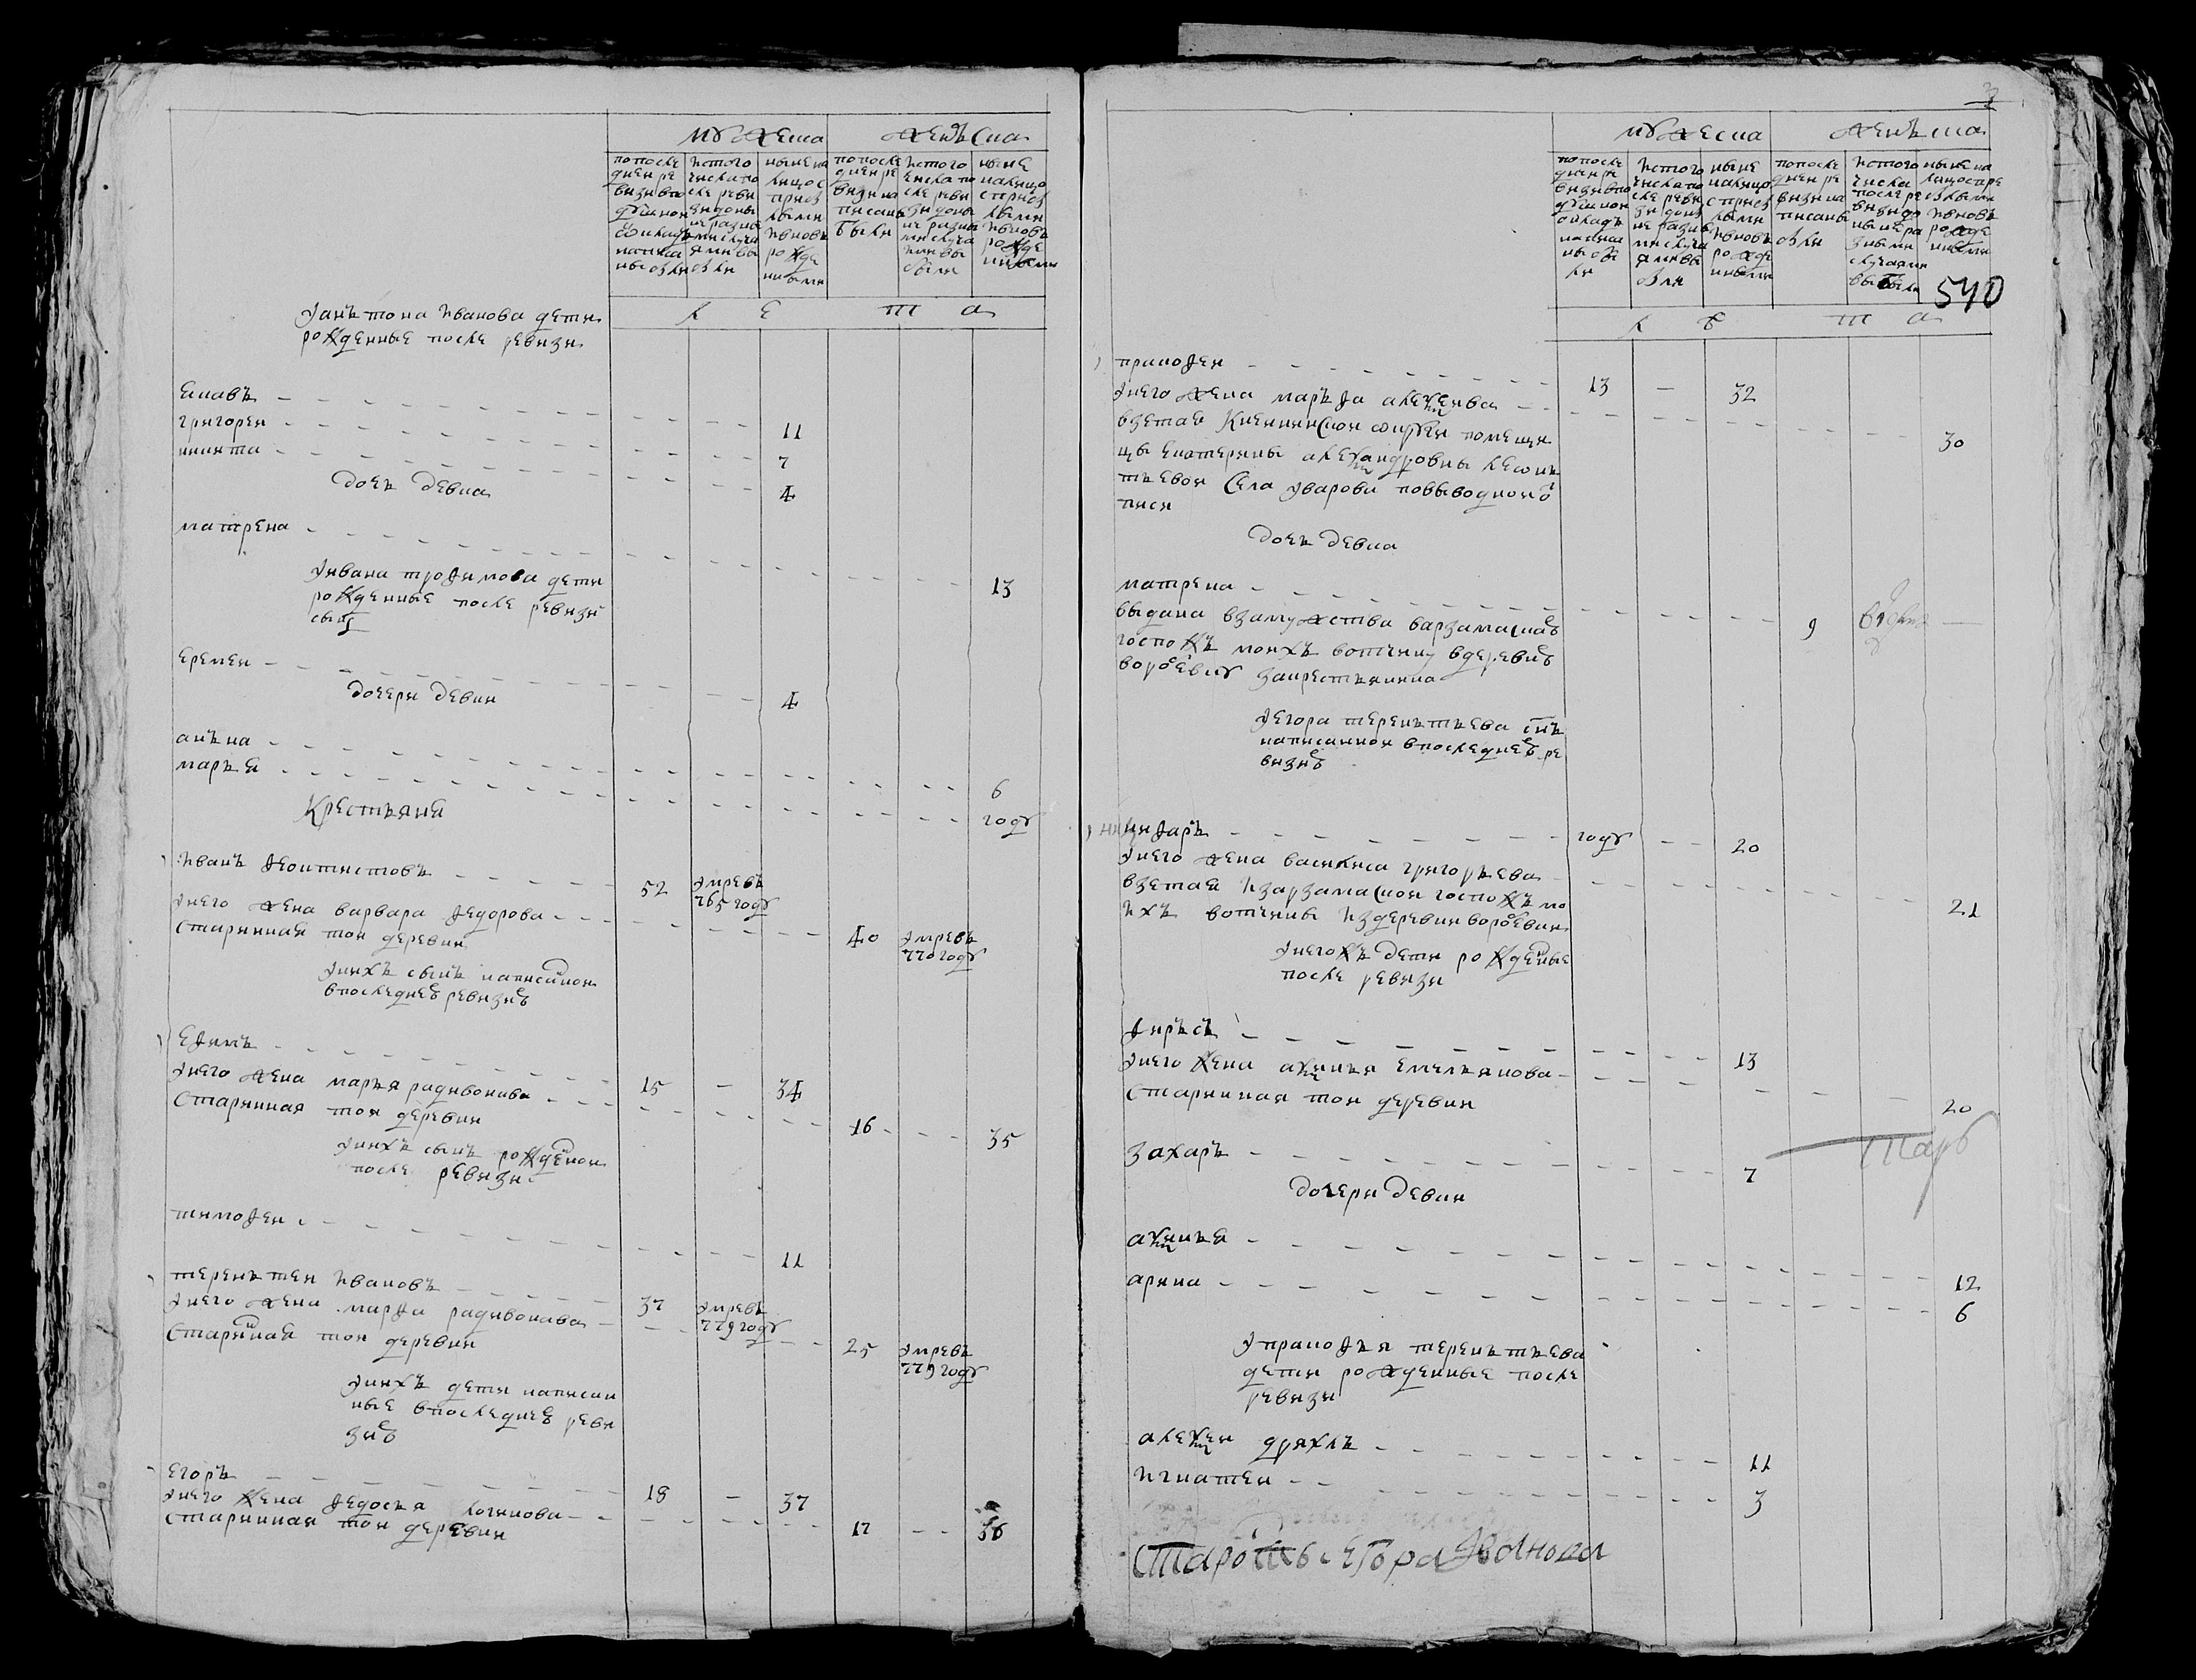 мужеска
женска
по последней ревизи в подушном окладе написаны были
ис того числа после ревизи до ныне разными случаями выбыли
ныне на лицо с прибылыми и вновь рожденными
по последней ревизи написаны были
ис того числа после ревизи до ныне разными случаями выбыли
ныне на лицо с прибылыми и вновь рожденными
л е т а
у антона иванова дети
рожденные после ревизи
григореи 7
никита 4
дочь девка
матрена 13
у ивана трофимова дети
рожденные после ревизи
сын
еремеи 4
дочери девки
анъна 6
марья году
крестьяня
иванъ феоктистовъ 52 умре въ
765 году
у него жена варвара федорова
старинная тои деревни 40 умре въ
770 году
у нихъ сынъ написаннои
в последнеи ревизии
ефимъ 15 - 34
у него жена марья радивонова
старинная тои деревни 16 35
у нихъ сынъ рожденнои
после ревизи
тимофеи 11
терентеи ивановъ 37 умре въ
779 году
у него жена марфа радивонава
старинная тои деревни 25 умре въ
779 году
у нихъ дети написан
ные в последнеи реви
зии
егоръ 18 - 37
у него жена федосья логинова
старинная тои деревни 17 36
мужеска
женска
по последней ревизи в подушном окладе написаны были
ис того числа после ревизи до ныне разными случаями выбыли
ныне на лицо с прибылыми и вновь рожденными
по последней ревизи написаны были
ис того числа после ревизи до ныне разными случаями выбыли
ныне на лицо с прибылыми и вновь рожденными
540
л е т а
пракофеи 13 - 32
у него жена марфа алексеива
взетая 30
помещи
цы екатерины александровны леонъ
тьевои села уварова по выводному
писм
дочь девка
матрена 9
выдана в замужства в арзамаскаю
госпожъ моихъ вотчину в деревню
воробевку за крестьянина
у егора терентьева снъ
написаннои в последнеи ре
визии
никифаръ году - 20
у него жена василиса григорьева
взетая из арзамаскои госпожъ мо
ихъ вотчины из деревни воробевки 21
у него жъ дети рожденые
после ревизи
фирьсъ 13
у него жена аксинья емельянова
старинная тои деревни 20
захаръ 7
дочери девки
аксинья 12
арина 6
у пракофья терентьева
дети рожденные после
ревизи
алексеи дряхлъ 11
игнатеи 3
старосты егора иванова